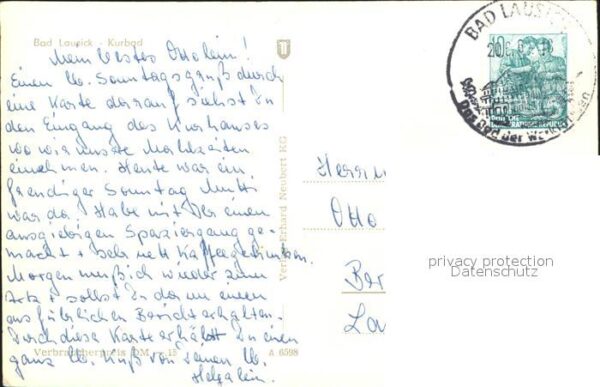 Bad Lausick - Kurbad
Mein bestes Ottolein!
Einen lb. Sonntagsgruß durch
eine Karte darauf siehst Du
den Eingang des Kurhauses
wo wir unsre Mahlzeiten
einnehmen. Heute war ein
freudiger Sonntag Mutti
war da. Habe mit ihr einen
ausgiebigen Spaziergang ge-
macht + sehr nett Kaffeegetrunken.
Morgen muß ich wieder zum
Arzt + sollst Du dann einen
ausführlichen Bericht erhalten.
Durch diese Karte erhältst Du einen
ganz lb. Kuß von Deinem lb.
Helgalein.
Verbraucherpreis DM -.15 A 6598
Verlag Erhard Neubert KG
Herrn
Otto
Ber
La
BAD LAUSI
10
privacy protection
Datenschutz